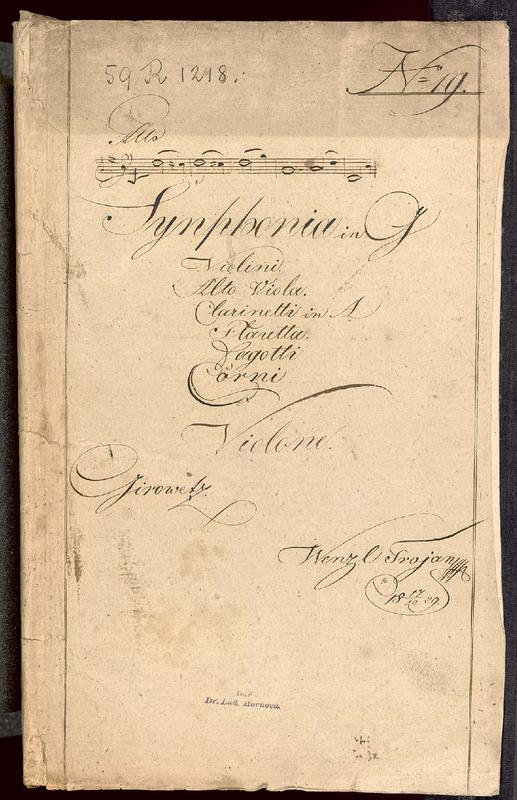 59 R 1218.
No 19.
Alto
Synphonia in G
Violini
Alto Viola.
Clarinetti in A
Flautta.
Fagotti
Corni
Violone.
Girowetz.
Wenzl Trojan
18 17/12 29.
Dar
Dr. Lad. Hornova.